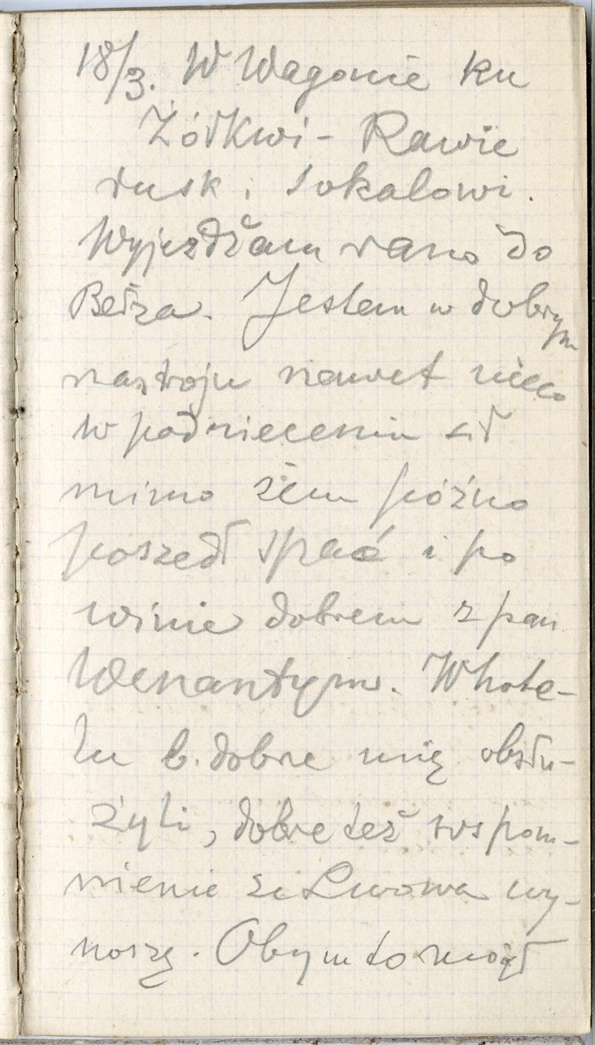 18/3. W Wagonie ku
Żółkwi - Rawie
rusk. i Sokalowi.
Wyjeżdżam rano do
Bełza. Jestem w dobrym
nastroju nawet nieco
w podnieceniu sił
mimo żem późno
poszedł spać i po
winie dobrem z pan
Wenantym. W hote-
lu b. dobre mię obsłu-
żyli, dobre też wspom-
nienie ze Lwowa wy-
noszę. Obym to mógł